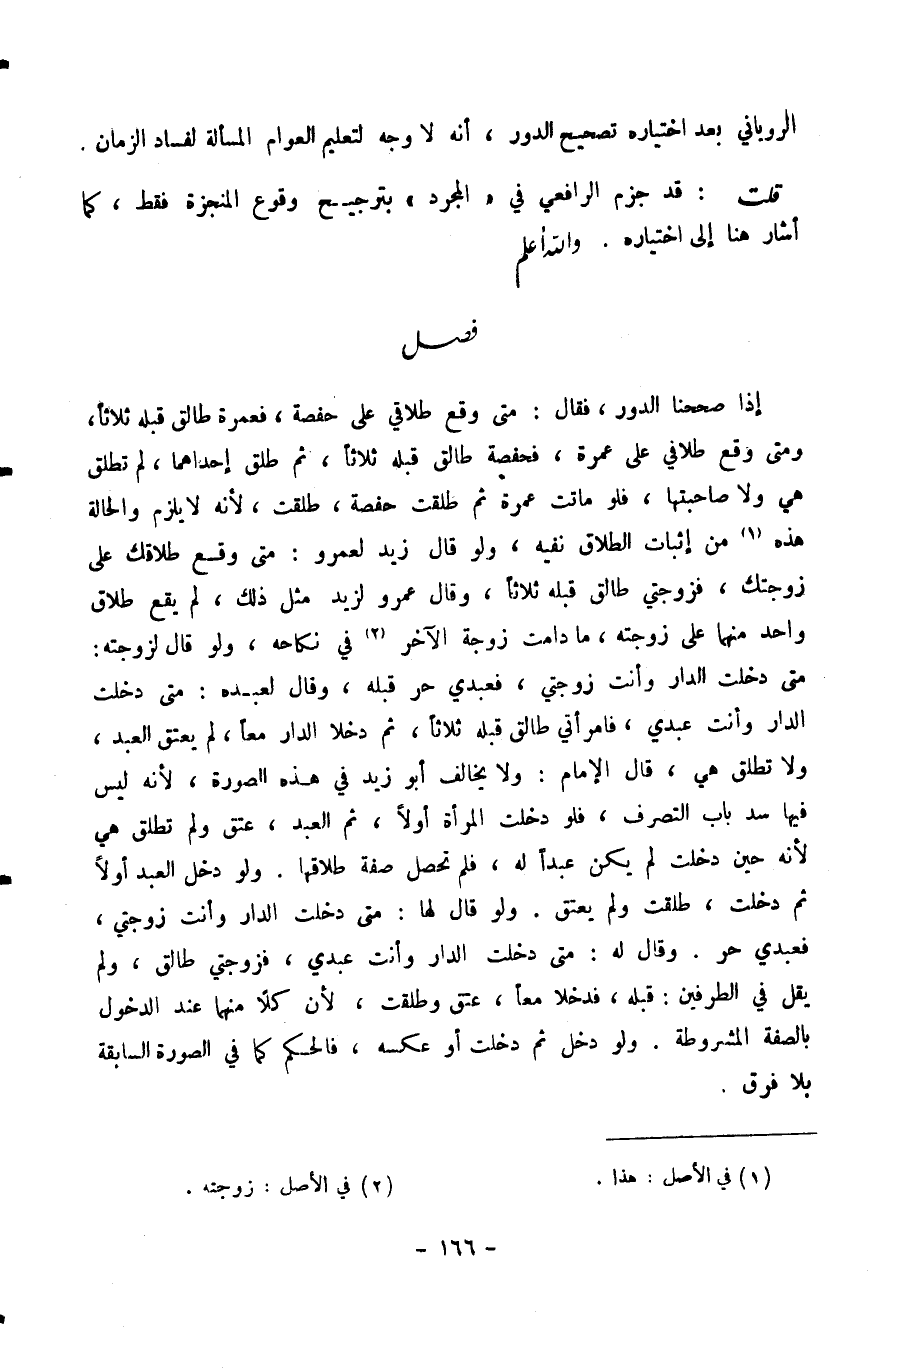 الروياني بعد اختياره تصحيح الدور ، أنه لا وجه لتعليم العوام المسألة لفساد الزمان .
قلت : قد جزم الرافعي في « المجرد » بترجيـح وقوع المنجزة فقط ، كما
أشار هنا إلى اختياره . والله أعلم
فصل
إذا صححنا الدور ، فقال : متى وقع طلاقي على حفصة ، فعمرة طالق قبله ثلاثاً ،
ومتى وقع طلاقي على عمرة ، فحفصة طالق قبله ثلاثاً ، ثم طلق إحداهما ، لم تطلق
هي ولا صاحبتها ، فلو ماتت عمرة ثم طلقت حفصة ، طلقت ، لأنه لا يلزم والحالة
هذه (١) من إثبات الطلاق نفيه ، ولو قال زيد لعمرو : متى وقـع طلاقك على
زوجتك ، فزوجتي طالق قبله ثلاثاً ، وقال عمرو لزيد مثل ذلك ، لم يقع طلاق
واحد منهما على زوجته ، ما دامت زوجة الآخر (٢) في نكاحه ، ولو قال لزوجته :
متى دخلت الدار وأنت زوجتي ، فعبدي حر قبله ، وقال لعبـده : متى دخلت
الدار وأنت عبدي ، فامرأتي طالق قبله ثلاثاً ، ثم دخلا الدار معاً ، لم يعتق العبد ،
ولا تطلق هي ، قال الإمام : ولا يخالف أبو زيد في هـذه الصورة ، لأنه ليس
فيها سد باب التصرف ، فلو دخلت المرأة أولاً ، ثم العبد ، عتق ولم تطلق هي
لأنه حين دخلت لم يكن عبداً له ، فلم تحصل صفة طلاقها . ولو دخل العبد أولاً
ثم دخلت ، طلقت ولم يعتق . ولو قال لها : متى دخلت الدار وأنت زوجتي ،
فعبدي حر . وقال له : متى دخلت الدار وأنت عبدي ، فزوجتي طالق ، ولم
يقل في الطرفين : قبله ، فدخلا معاً ، عتق وطلقت ، لأن كلاً منهما عند الدخول
بالصفة المشروطة . ولو دخل ثم دخلت أو عكسه ، فالحكم كما في الصورة السابقة
بلا فرق .
(١) في الأصل : هذا .
(٢) في الأصل : زوجته .
- ١٦٦ -